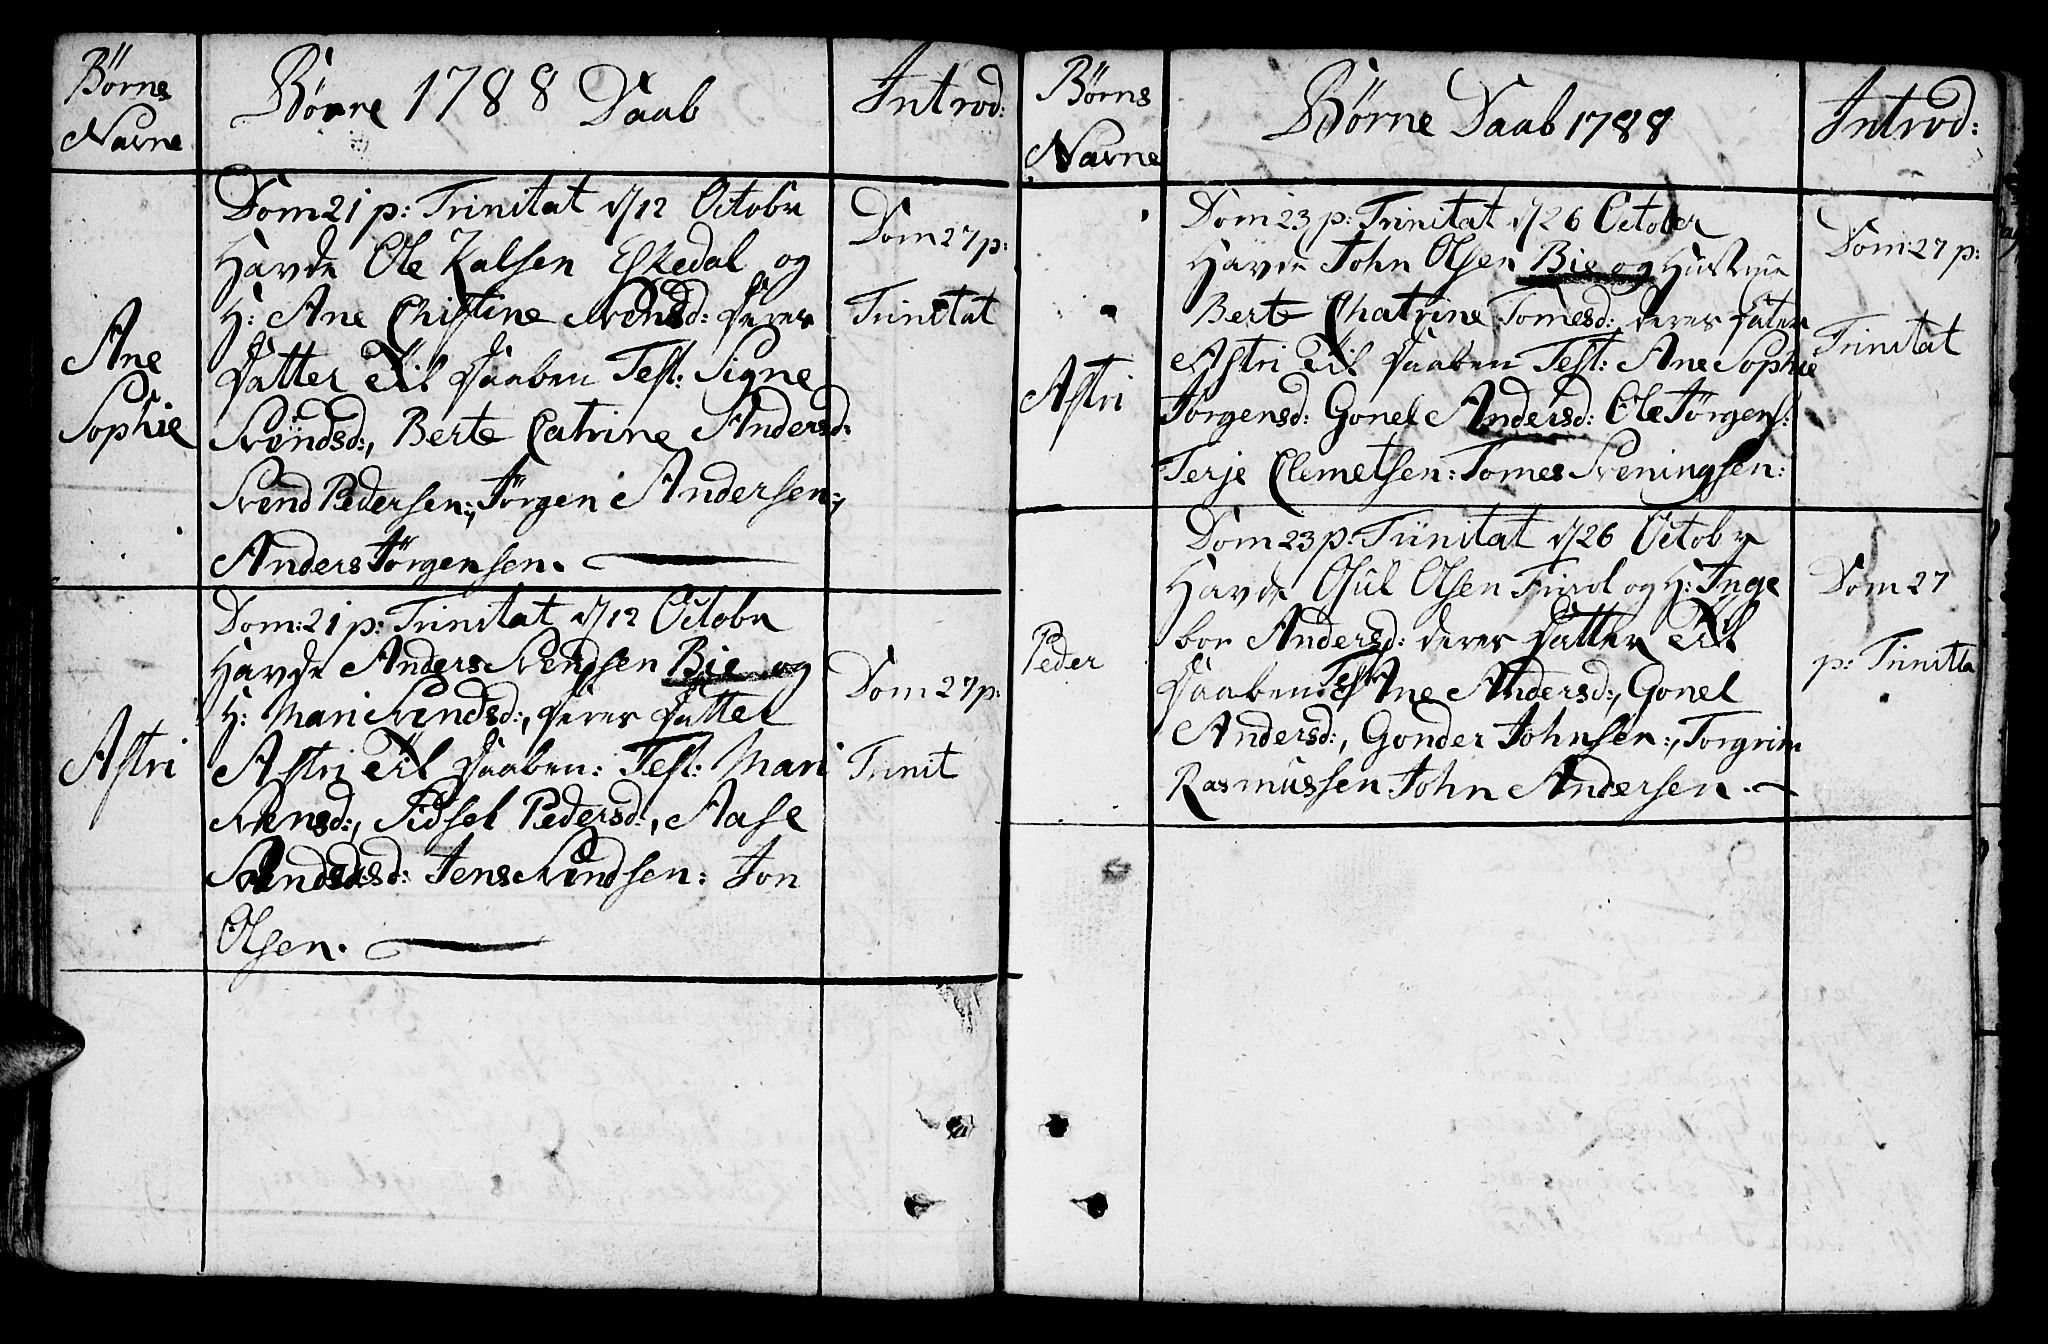 Børns
Navne
Børne 1788 Daab
Introd:
Dom 21 p: Trinitat d/12 Octobr
Havde Ole Kalsen Eskedal og
H: Ane Christine Svensd: deres
Datter til Daaben Test: Signe
Svendsd:, Berte Catrine Andersd:
Svend Pedersen:, Jörgen Andersen:,
Anders Jörgensen.
Ane
Sophie
Dom 27 p:
Trinitat
Dom: 21 p: Trinitat d/12 Octobr
Havde Anders Svendsen Bie og
H: Mari Svendsd:, deres Datter
Astri til Daaben: Test: Mari
Svensd:, Sidsel Pedersd:, Aase
Jens Svendsen: Jon
Olsen.
Astri
Dom 27 p:
Trinit
Børns
Navne
Børne Daab 1788
Introd:
Dom 23 p: Trinitat d/26 October
Havde John Olsen Bie og Hustrue
Berte Chatrine Tomesd: deres Datter
Astri til Daaben Test: Ane Sophie
Jørgensd: Gonel Andersd: Ole Jørgens:
Terje Clemetsen: Tomes Sveningsen:
Astri
Dom 27 p:
Trinitat
Dom 23 p: Trinitat d/26 Octobr
Havde Osul Olsen og H: Inge
bor Andersd: deres Datter til
Daaben Test: Ane Andersd:, Gonel
Andersd:, Gonder Johnsen:, Torgrim
Rasmussen John Andersen.
Peder
Dom 27
p: Trinita